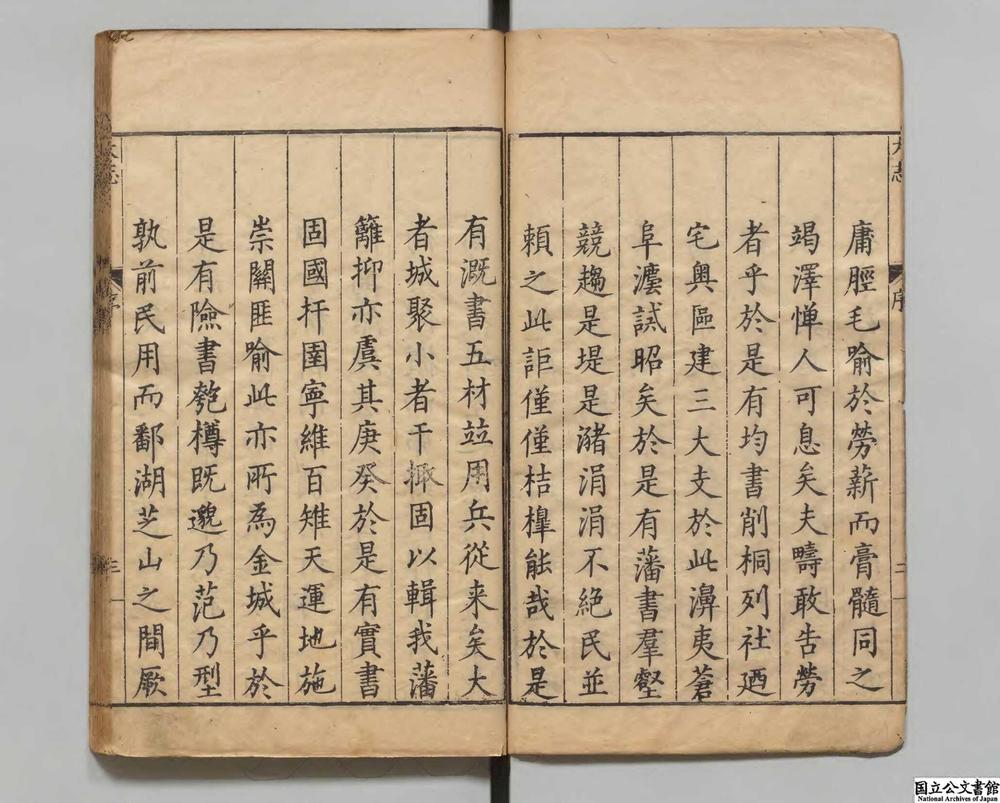 庸脛毛喻於勞薪而膏髓同之
竭澤憚人可息矣夫疇敢告勞
者乎於是有均書削桐列社迺
宅奧區建三大支於此濞夷蒼
阜灋試昭矣於是有藩書羣壑
競趨是堤是潴涓涓不絕民並
賴之此詎僅僅桔槹能哉於是
有溉書五材竝用兵從来矣大
者城聚小者干掫固以輯我藩
籬抑亦虞其庚癸於是有實書
固國扞圉寧維百雉天運地施
崇關匪喻此亦所爲金城乎於
是有險書匏樽既邈乃范乃型
孰前民用而鄱湖芝山之間厥
大志
序
二
大志
序
三
国立公文書館
National Archives of Japan